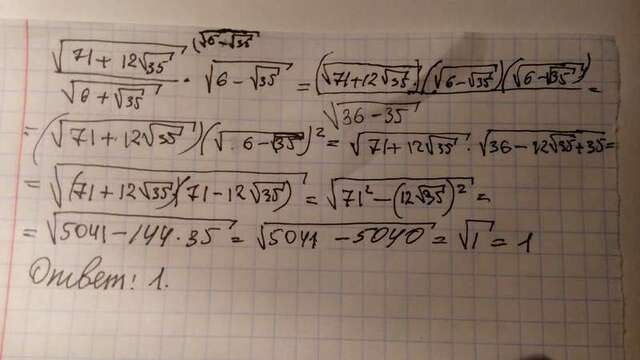 (√(6-√35)
√(71+12√35) / √(6+√35) · √(6-√35) = (√(71+12√35))(√(6-√35))(√(6-√35)) / √(36-35) =
= (√(71+12√35))(√(6-√35))² = √(71+12√35) · √(36-12√35+35) =
= √((71+12√35)(71-12√35)) = √(71²-(12√35)²) =
= √(5041-144·35) = √(5041-5040) = √1 = 1
Ответ: 1.